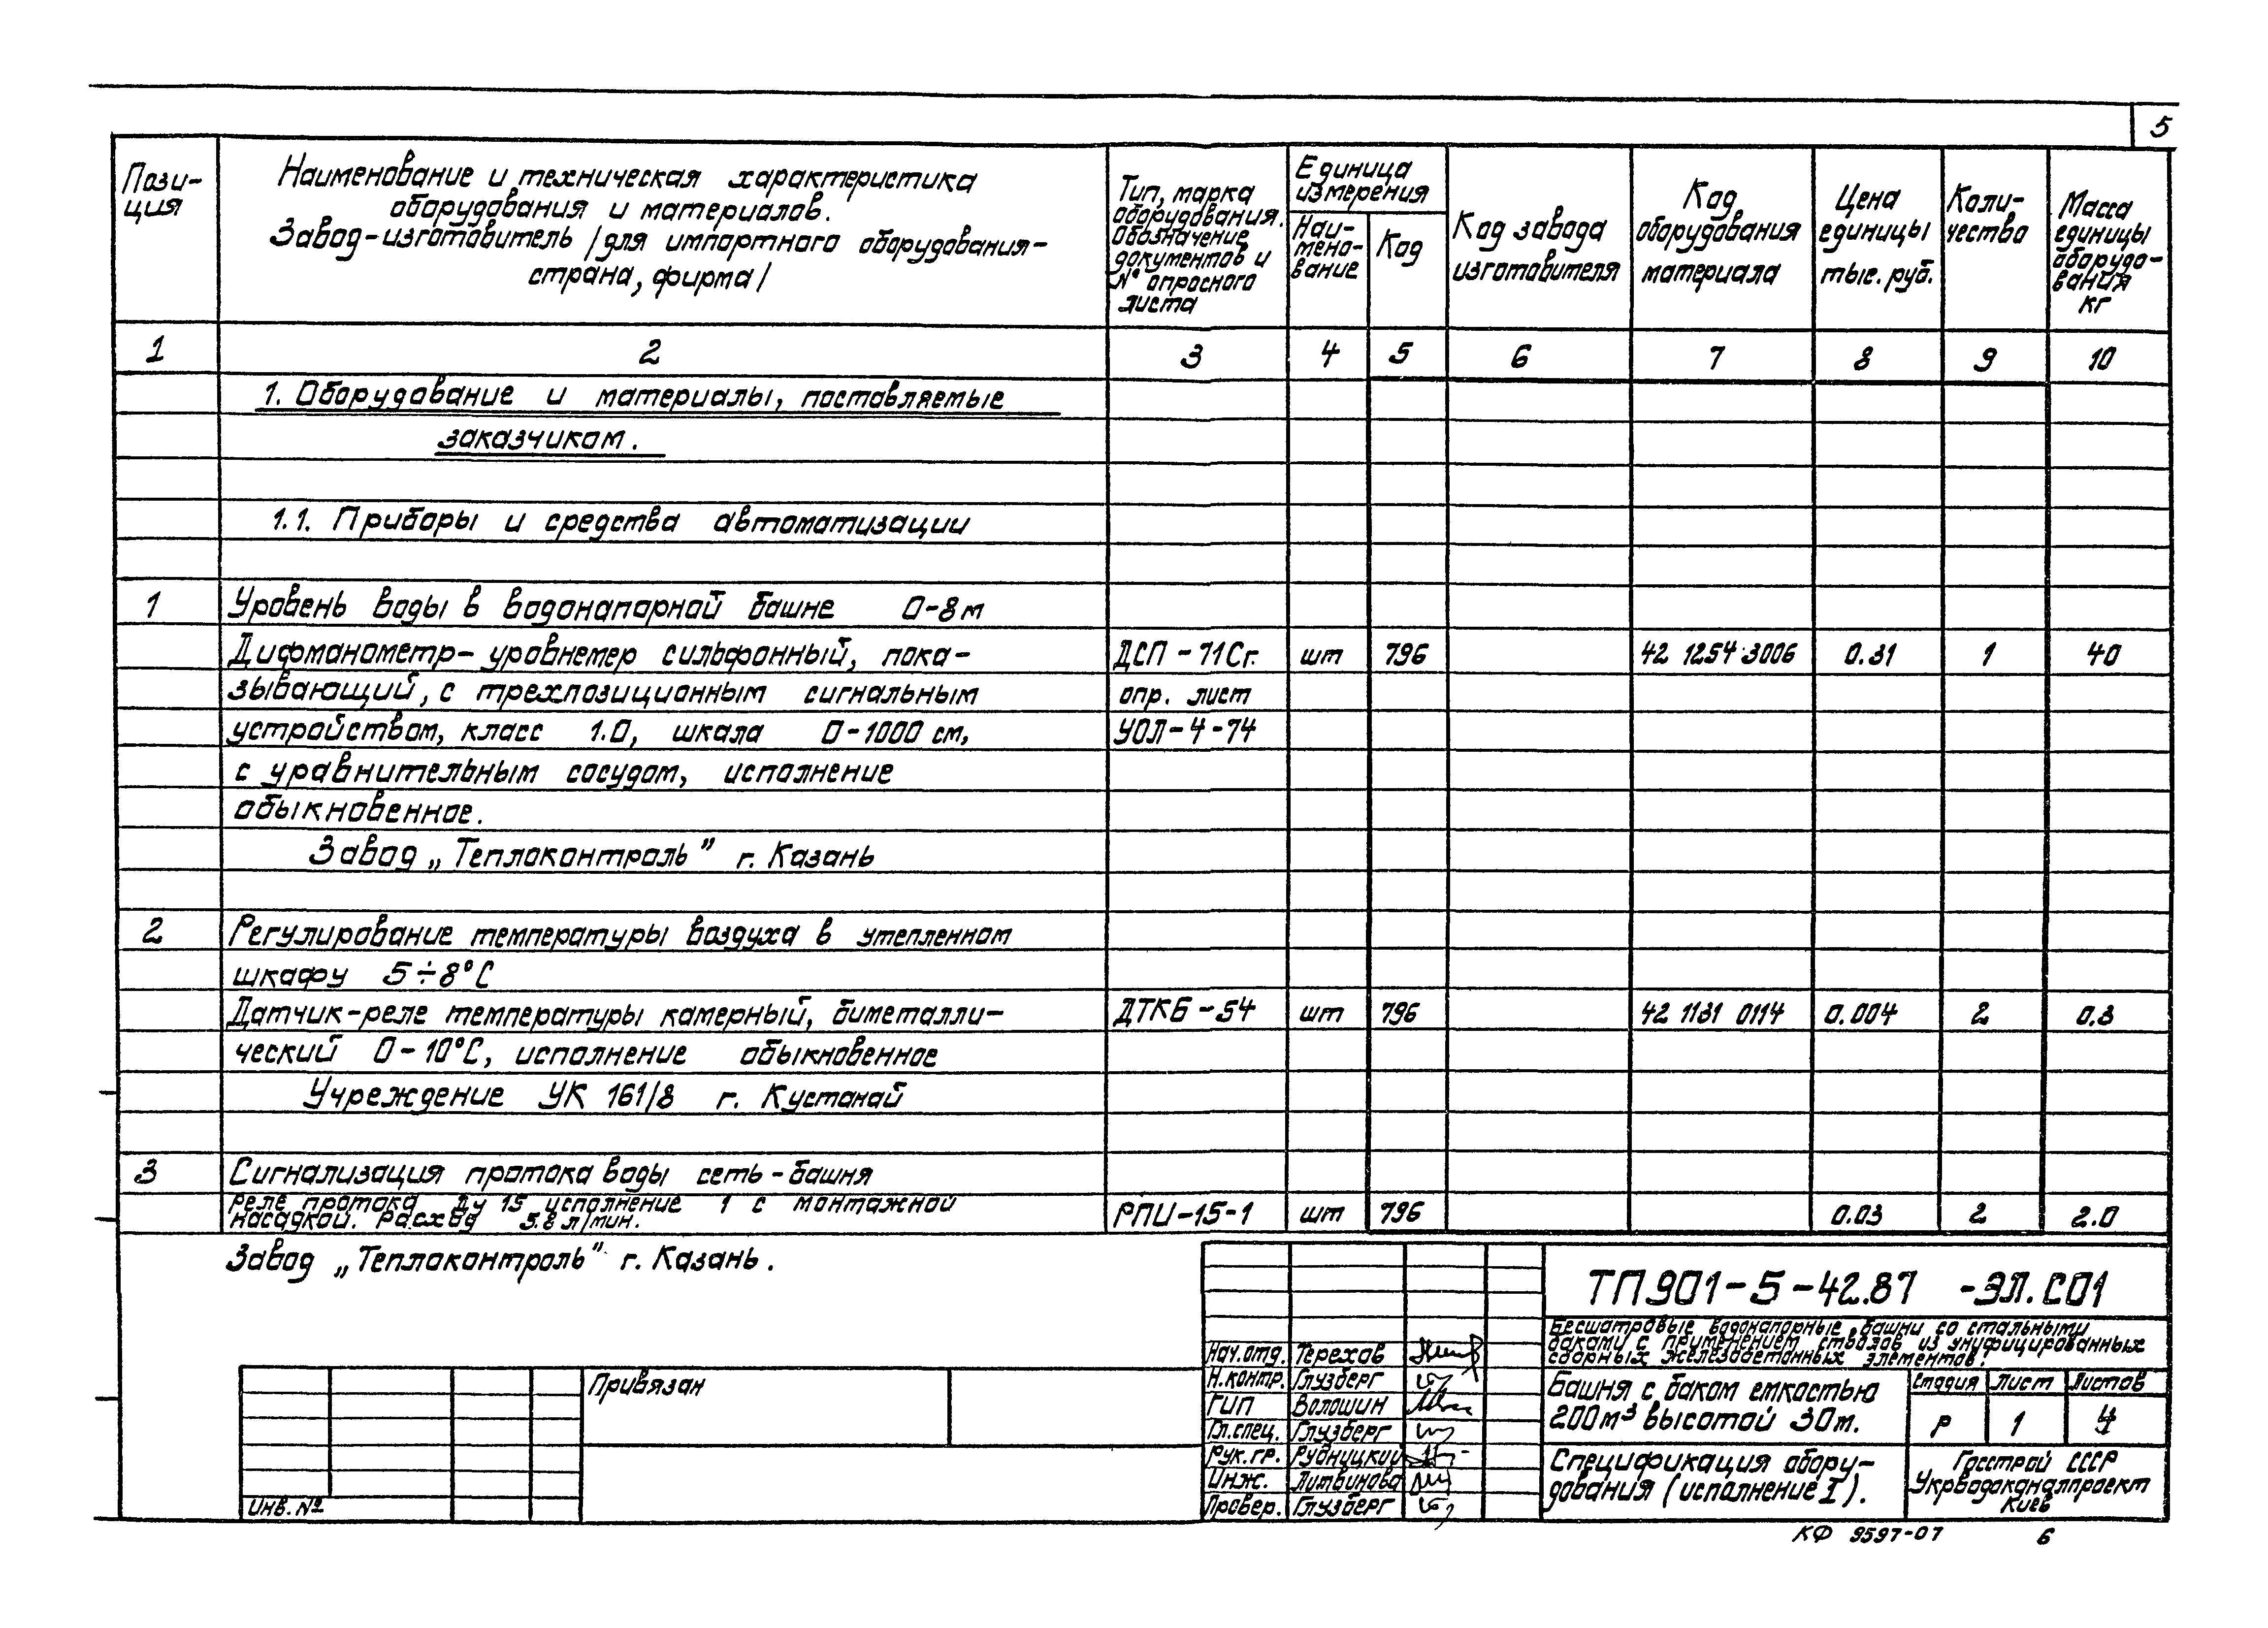 5
Пози-
ция
Наименование и техническая характеристика
оборудования и материалов.
Завод-изготовитель /для импортного оборудования-
страна, фирма/
Тип, марка
оборудования.
обозначение
документов и
№ опросного
листа
Единица
измерения
Наи-
мено-
вание
Код
Код завода
изготовителя
Код
оборудования
материала
Цена
единицы
тыс. руб.
Коли-
чество
Масса
единицы
оборудо-
вания
кг
1 2 3 4 5 6 7 8 9 10
1. Оборудование и материалы, поставляемые
заказчиком.
1.1. Приборы и средства автоматизации
1 Уровень воды в водонапорной башне 0-8м
Дифманометр-уровнемер сильфонный, пока- ДСП-71Сг. шт 796 42 1254 3006 0.31 1 40
зывающий, с трехпозиционным сигнальным опр. лист
устройством, класс 1.0, шкала 0-1000 см, УОЛ-4-74
с уравнительным сосудом, исполнение
обыкновенное.
Завод „Теплоконтроль" г. Казань
2 Регулирование температуры воздуха в утепленном
шкафу 5÷8°С
Датчик-реле температуры камерный, биметалли- ДТКБ-54 шт 796 42 1131 0114 0.004 2 0.3
ческий 0-10°С, исполнение обыкновенное
Учреждение УК 161/8 г. Кустанай
3 Сигнализация протока воды сеть-башня
реле протока Ду 15 исполнение 1 с монтажной
насадкой. Расход 5.8 л/мин. РПИ-15-1 шт 796 0.03 2 2.0
Завод „Теплоконтроль" г. Казань.
ТП901-5-42.87 -ЭЛ.СО1
Бесшатровые водонапорные башни со стальными
баками с применением стволов из унифицированных
сборных железобетонных элементов.
Нач.отд. Терехов
Н.контр. Глузберг
ГИП Волошин
Гл.спец. Глузберг
Рук.гр. Рудницкий
Инж. Литвинова
Провер. Глузберг
Башня с баком емкостью
200м³ высотой 30м.
Стадия Лист Листов
Р 1 4
Спецификация обору-
дования (исполнение I).
Госстрой СССР
Укрводоканалпроект
Киев
Привязан
Инв. №
КФ 9597-07 6